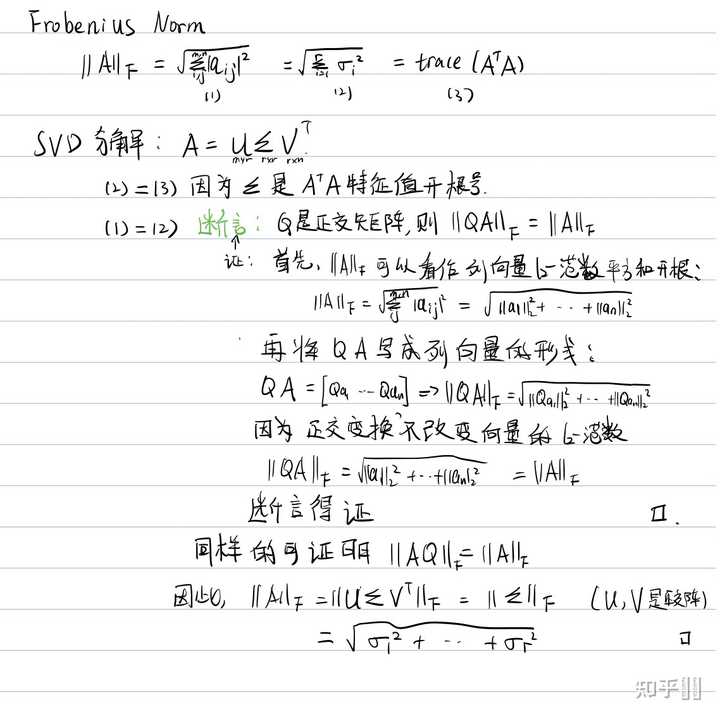 Frobenius Norm
||A||_F = √(Σ_{i,j}^{m,n} |a_{ij}|²) = √(Σ_{i=1}^{r} σ_i²) = trace(AᵀA)
(1) (2) (3)
SVD 分解: A = U Σ Vᵀ.
m×r r×r r×n
(2)=(3) 因为 Σ 是 AᵀA 特征值开根号.
(1)=(2) 断言: Q是正交矩阵, 则 ||QA||_F = ||A||_F
↑
证: 首先, ||A||_F 可以看作列向量 l₂-范数平方和开根:
||A||_F = √(Σ_{i,j}^{m,n} |a_{ij}|²) = √(||a₁||₂² + ··· + ||aₙ||₂²)
再将 QA 写成列向量的形式:
QA = [Qa₁ ··· Qaₙ] => ||QA||_F = √(||Qa₁||₂² + ··· + ||Qaₙ||₂²)
因为正交变换不改变向量的 l₂-范数
||QA||_F = √(||a₁||₂² + ··· + ||aₙ||₂²) = ||A||_F
断言得证 □.
同样的可证明 ||AQ||_F = ||A||_F
因此, ||A||_F = ||UΣVᵀ||_F = ||Σ||_F (U,V是正交阵)
= √(σ₁² + ··· + σᵣ²) □
知乎